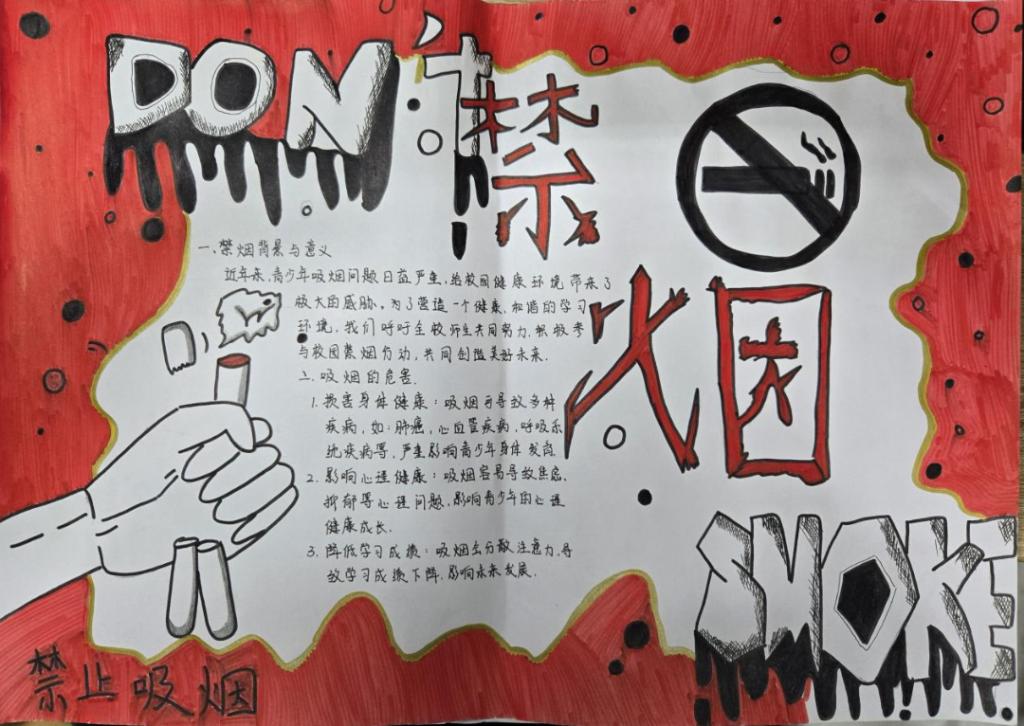 DON't
禁
烟
一、禁烟背景与意义
近年来,青少年吸烟问题日益严重,给校园健康环境带来了
极大的威胁。为了营造一个健康,和谐的学习
环境,我们呼吁全校师生共同努力,积极参
与校园禁烟行动,共同创造美好未来.
二.吸烟的危害.
1.损害身体健康:吸烟可导致多种
疾病,如:肺癌,心血管疾病,呼吸系
统疾病等,严重影响青少年身体发育
2.影响心理健康:吸烟容易导致焦虑,
抑郁等心理问题,影响青少年的心理
健康成长.
3.降低学习成绩:吸烟会分散注意力,导
致学习成绩下降,影响未来发展.
SMOKE
禁止吸烟